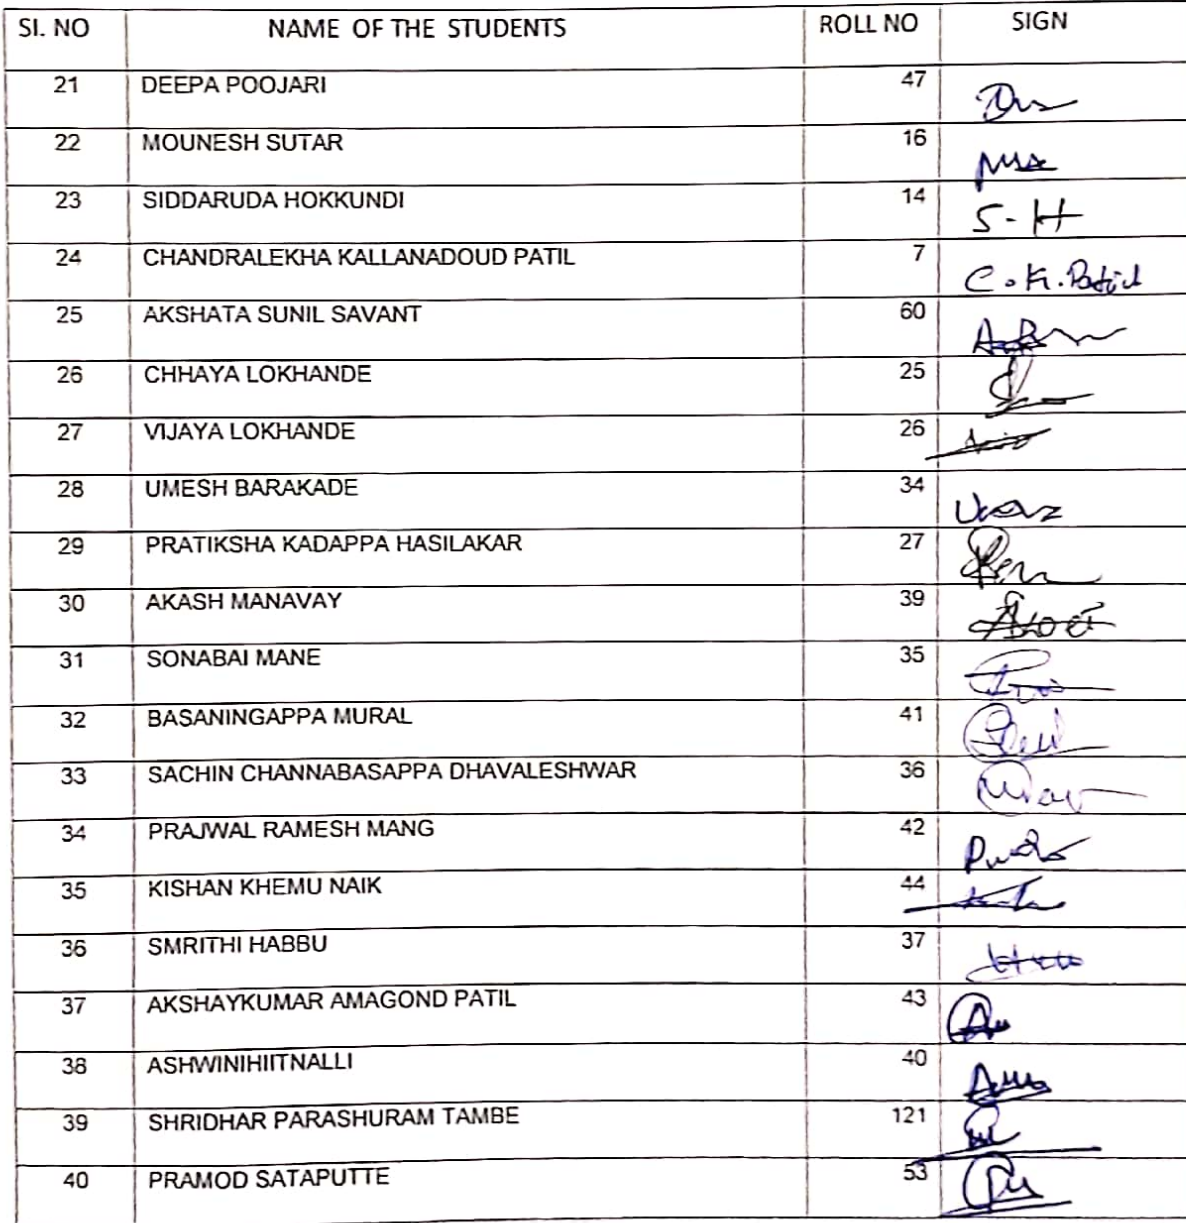 SI. NO NAME OF THE STUDENTS ROLL NO SIGN
21 DEEPA POOJARI 47
22 MOUNESH SUTAR 16
23 SIDDARUDA HOKKUNDI 14 S-H
24 CHANDRALEKHA KALLANADOUD PATIL 7 C.K.Patil
25 AKSHATA SUNIL SAVANT 60
26 CHHAYA LOKHANDE 25
27 VIJAYA LOKHANDE 26
28 UMESH BARAKADE 34
29 PRATIKSHA KADAPPA HASILAKAR 27
30 AKASH MANAVAY 39
31 SONABAI MANE 35
32 BASANINGAPPA MURAL 41
33 SACHIN CHANNABASAPPA DHAVALESHWAR 36
34 PRAJWAL RAMESH MANG 42
35 KISHAN KHEMU NAIK 44
36 SMRITHI HABBU 37
37 AKSHAYKUMAR AMAGOND PATIL 43
38 ASHWINIHIITNALLI 40
39 SHRIDHAR PARASHURAM TAMBE 121
40 PRAMOD SATAPUTTE 53